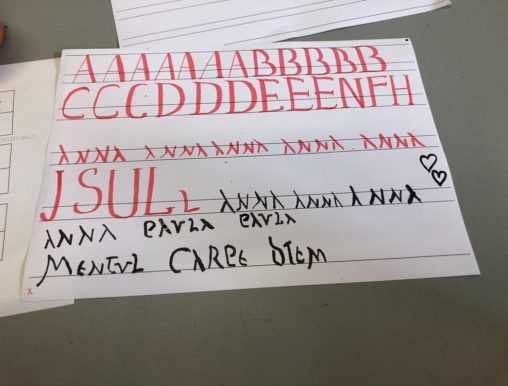 AAAAAAABBBBB
CCCDDDDEEENFH
ANNA ANNA ANNA ANNA ANNA
JSULL ANNA ANNA ANNA
ANNA PAULA PAULA
CARPE DIEM